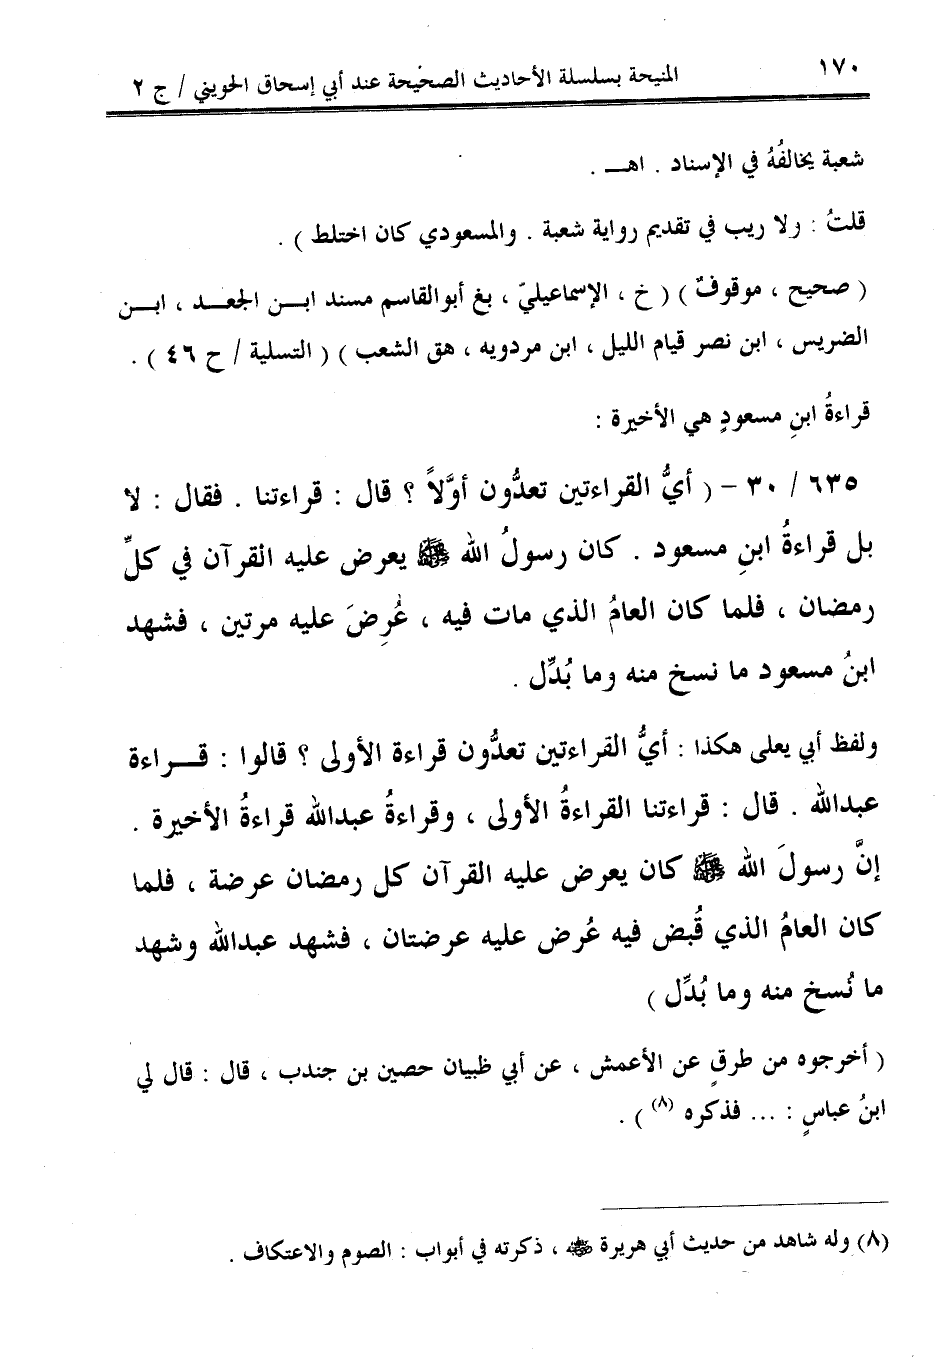 ١٧٠ المنيحة بسلسلة الأحاديث الصحيحة عند أبي إسحاق الحويني / ج ٢
شعبة يخالفُهُ في الإسناد . اهــ .
قلتُ : ولا ريب في تقديم رواية شعبة . والمسعودي كان اختلط ) .
( صحيح ، موقوفٌ ) ( خ ، الإسماعيليّ ، بغ أبوالقاسم مسند ابـن الجعـد ، ابـن
الضريس ، ابن نصر قيام الليل ، ابن مردويه ، هق الشعب ) ( التسلية / ح ٤٦ ) .
قراءةُ ابنِ مسعودٍ هي الأخيرة :
٦٣٥ / ٣٠ – ( أيُّ القراءتين تعدُّون أوَّلاً ؟ قال : قراءتنا . فقال : لا
بل قراءةُ ابنِ مسعود . كان رسولُ الله ﷺ يعرض عليه القرآن في كلِّ
رمضان ، فلما كان العامُ الذي مات فيه ، عُرِضَ عليه مرتين ، فشهد
ابنُ مسعود ما نسخ منه وما بُدِّل .
ولفظ أبي يعلى هكذا : أيُّ القراءتين تعدُّون قراءة الأولى ؟ قالوا : قــراءة
عبدالله . قال : قراءتنا القراءةُ الأولى ، وقراءةُ عبدالله قراءةُ الأخيرة .
إنَّ رسولَ الله ﷺ كان يعرض عليه القرآن كل رمضان عرضة ، فلما
كان العامُ الذي قُبض فيه عُرض عليه عرضتان ، فشهد عبدالله وشهد
ما نُسخ منه وما بُدِّل )
( أخرجوه من طرقٍ عن الأعمش ، عن أبي ظبيان حصين بن جندب ، قال : قال لي
ابنُ عباسٍ : ... فذكره (٨) ) .
(٨) وله شاهد من حديث أبي هريرة ﷺ ، ذكرته في أبواب : الصوم والاعتكاف .